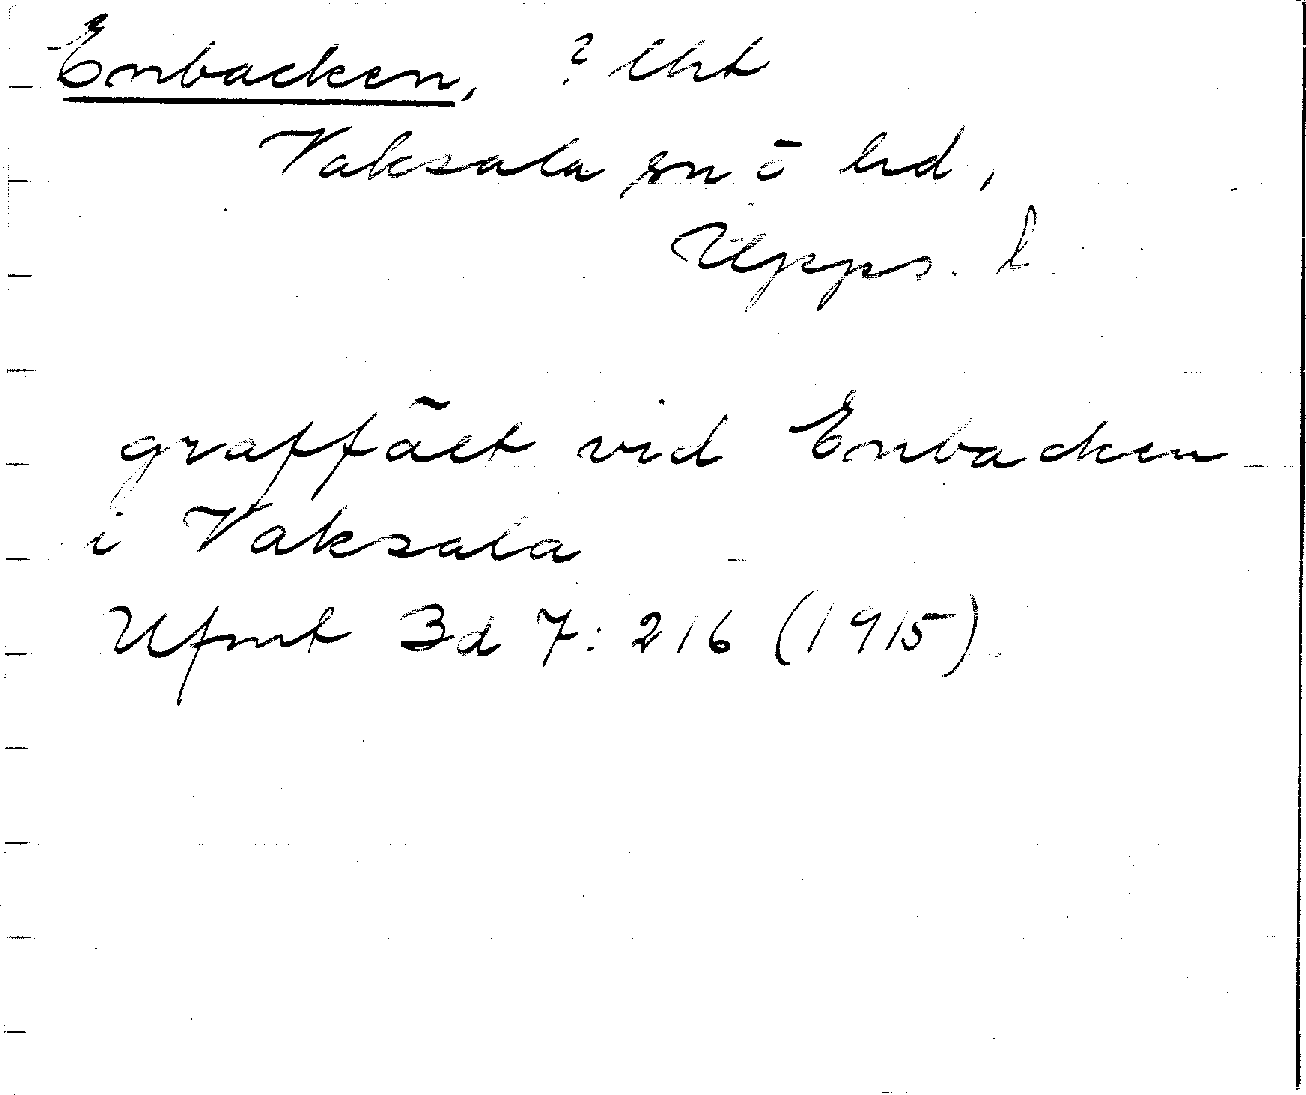 Enbacken, ? lht
Vaksala sn o hd,
Upps. l.
gravfält vid Enbacken
i Vaksala
Ufmt Bd 7: 216 (1915)